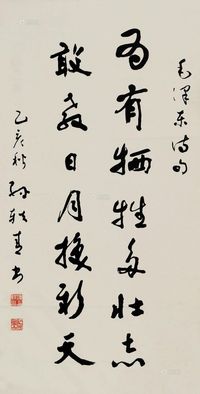 毛泽东诗句
为有牺牲多壮志
敢教日月换新天
乙亥秋 孙轶青书